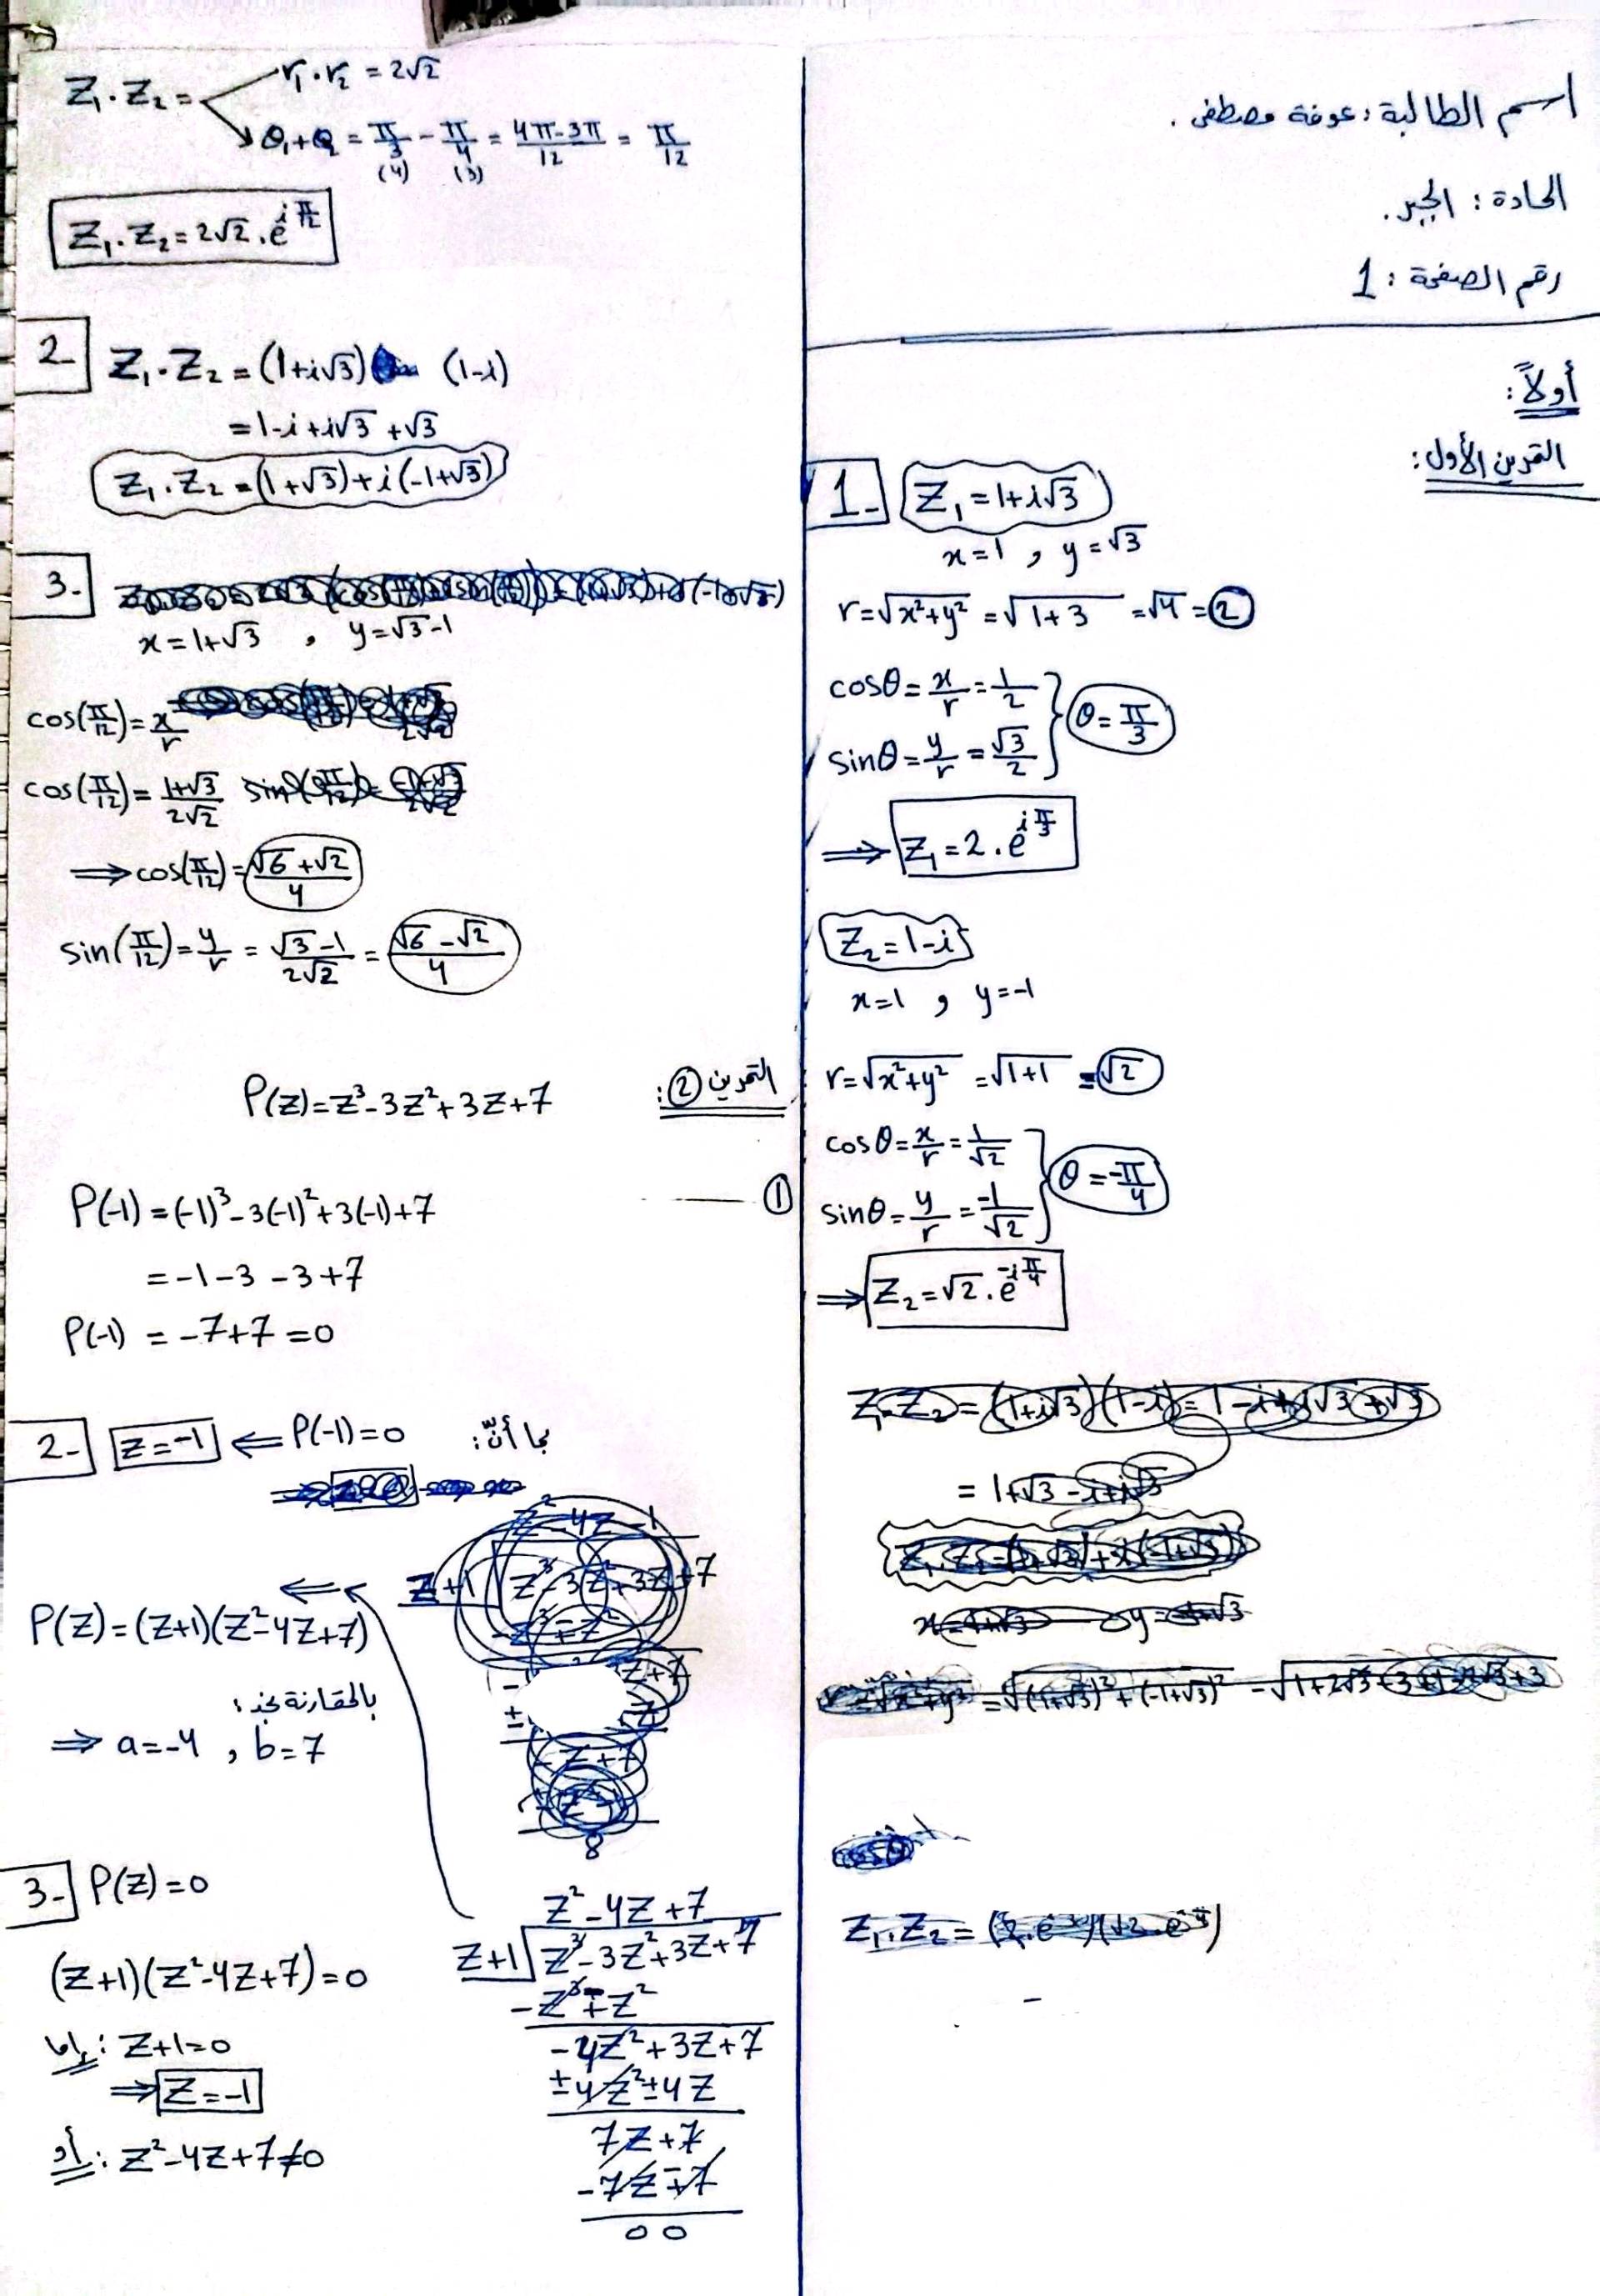 اسم الطالبة: عوفة مصطفى.
المادة: الجبر.
رقم الصفحة: 1
أولاً:
التمرين الأول:
1- Z₁ = 1+i√3
x=1 , y=√3
r=√x²+y² = √1+3 = √4 = 2
cosθ = x/r = 1/2
sinθ = y/r = √3/2
θ = π/3
⇒ Z₁ = 2 . e^(iπ/3)
Z₂ = 1-i
x=1 , y=-1
r=√x²+y² = √1+1 = √2
cosθ = x/r = 1/√2
sinθ = y/r = -1/√2
θ = -π/4
⇒ Z₂ = √2 . e^(-iπ/4)
Z₁.Z₂ = (1+i√3)(1-i) = 1-i+i√3+√3
= 1+√3-i+i√3
r=√x²+y² = √(1+√3)²+(-1+√3)²
Z₁.Z₂ =
Z₁.Z₂ =
r₁.r₂ = 2√2
θ₁+θ₂ = π/3 - π/4 = 4π-3π/12 = π/12
(4) (3)
Z₁.Z₂ = 2√2 . e^(iπ/12)
2- Z₁.Z₂ = (1+i√3) (1-i)
= 1-i+i√3+√3
Z₁.Z₂ = (1+√3)+i(-1+√3)
3-
x = 1+√3 , y = √3-1
cos(π/12) = x/r
cos(π/12) = 1+√3/2√2
⇒ cos(π/12) = √6+√2/4
sin(π/12) = y/r = √3-1/2√2 = √6-√2/4
التمرين ②:
P(Z) = Z³-3Z²+3Z+7
①
P(-1) = (-1)³-3(-1)²+3(-1)+7
= -1-3-3+7
P(-1) = -7+7 = 0
2- بما أنّ: P(-1)=0 ⇐ Z=-1
Z²-4Z-1
Z+1 Z³-3Z²+3Z+7
8
⇐
P(Z) = (Z+1)(Z²-4Z+7)
بالمقارنة نجد:
⇒ a=-4 , b=7
Z²-4Z+7
Z+1 Z³-3Z²+3Z+7
-Z³∓Z²
-4Z²+3Z+7
±4Z²±4Z
7Z+7
-7Z∓7
0 0
3- P(Z)=0
(Z+1)(Z²-4Z+7)=0
إما: Z+1=0
⇒ Z=-1
أو: Z²-4Z+7≠0